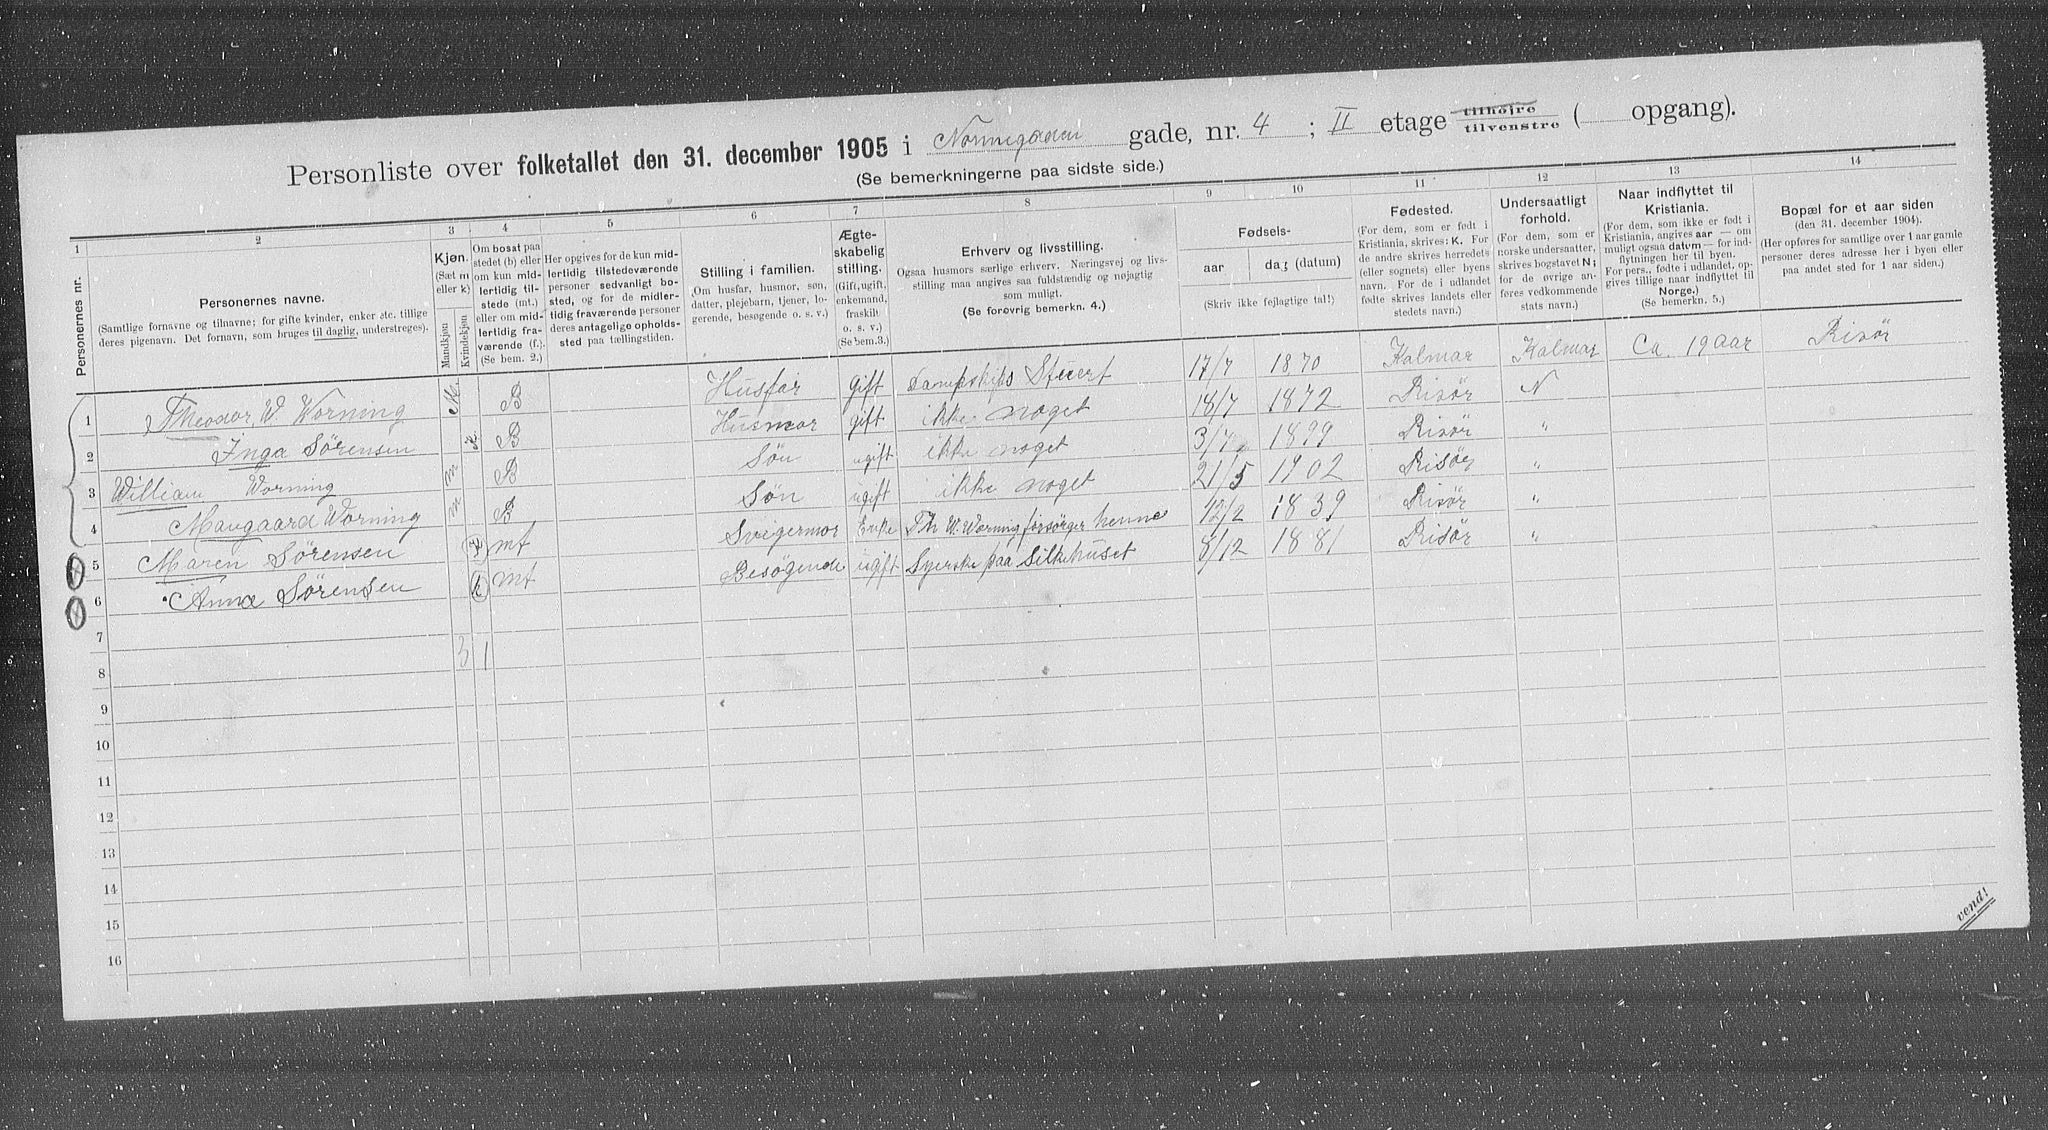 Personliste over folketallet den 31. december 1905 i Nornegaden gade, nr. 4 ; II etage tilhøjre tilvenstre ( opgang).
(Se bemerkningerne paa sidste side.)
1 2 3 4 5 6 7 8 9 10 11 12 13 14
Personernes nr.
Personernes navne.
(Samtlige fornavne og tilnavne; for gifte kvinder, enker etc. tillige deres pigenavn. Det fornavn, som bruges til daglig, understreges).
Kjøn.
(Sæt m eller k)
Mandkjøn
Kvindekjøn
Om bosat paa stedet (b) eller om kun midlertidig tilstede (mt.) eller om midlertidig fraværende (f.) (Se bem. 2.)
Her opgives for de kun midlertidig tilstedeværende personer sedvanligt bosted, og for de midlertidig fraværende personer deres antagelige opholdssted paa tællingstiden.
Stilling i familien.
(Om husfar, husmor, søn, datter, plejebarn, tjener, logerende, besøgende o. s. v.)
Ægteskabelig stilling.
(Gift, ugift, enkemand, fraskilt o. s. v.) (Se bem.3.)
Erhverv og livsstilling.
Ogsaa husmors særlige erhverv. Næringsvej og livsstilling maa angives saa fuldstændig og nøjagtig som muligt.
(Se forøvrig bemerkn. 4.)
Fødsels-
aar
dag (datum)
(Skriv ikke fejlagtige tal!)
Fødested.
(For dem, som er født i Kristiania, skrives: K. For de andre skrives herredets (eller sognets) eller byens navn. For de i udlandet fødte skrives landets eller stedets navn.)
Undersaatligt forhold.
(For dem, som er norske undersaatter, skrives bogstavet N; for de øvrige anføres vedkommende stats navn.)
Naar indflyttet til Kristiania.
(For dem, som ikke er født i Kristiania, angives aar — om muligt ogsaa datum — for indflytningen her til byen. For pers., fødte i udlandet, opgives tillige naar indflyttet til Norge.)
(Se bemerkn. 5.)
Bopæl for et aar siden
(den 31. december 1904).
(Her opføres for samtlige over 1 aar gamle personer deres adresse her i byen eller paa andet sted for 1 aar siden.)
1 Theodor W Worning M. B Husfar gift Dampskips Stuert 17/7 1870 Kalmar Kalmar Ca. 19 aar Risör
2 Inga Sörensen k. B Husmor gift ikke noget 18/7 1872 Risör N
3 William Worning m B Sön ugift ikke noget 3/7 1899 Risör "
4 Maugaard Worning m B Sön ugift ikke noget 21/5 1902 Risör "
5 Maren Sörensen k mt Svigermor Enke Th W. Worning forsörger henne 12/2 1839 Risör "
6 Anna Sörensen k mt Besögende ugift Syerske paa Silkehuset 8/12 1881 Risör "
7
8 3 1
9
10
11
12
13
14
15
16
vend!